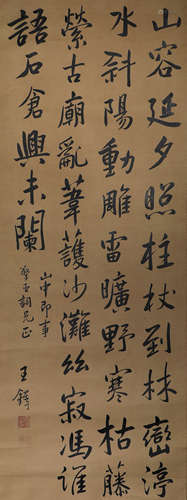 山容延夕照柱杖到林巒渟
水斜陽動雕雷曠野寒枯藤
縈古廟亂葦護沙灘絲寂馮誰
語石倉興未闌
山中即事
詞兄正
王鐸